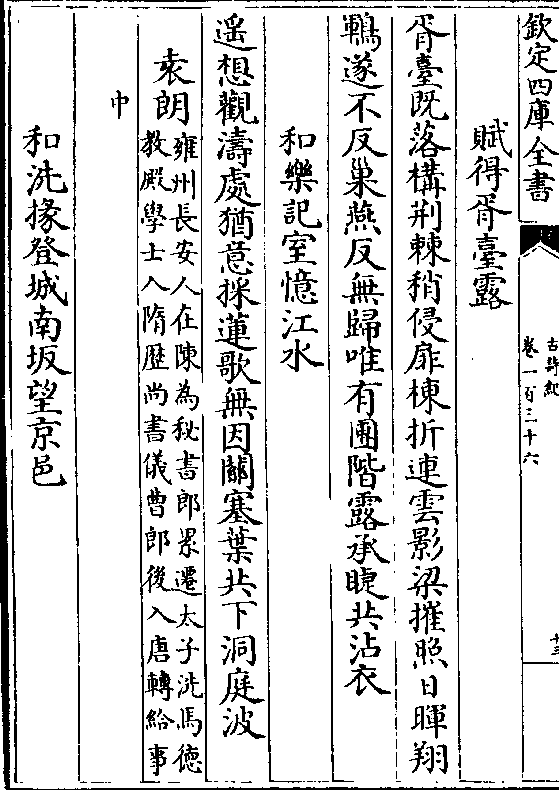 欽定四庫全書
古詩紀
卷一百三十六
十三
賦得胥臺露
胥臺既落構荆棘稍侵扉棟折連雲影梁摧照日暉翔
鶤遂不反巢燕反無歸唯有團階露承睫共沾衣
和樂記室憶江水
遥想觀濤處猶意採蓮歌無因關塞葉共下洞庭波
袁朗
雍州長安人在陳為秘書郎累遷太子洗馬德
教殿學士入隋歴尚書儀曹郎後入唐轉給事
中
和洗掾登城南坂望京邑